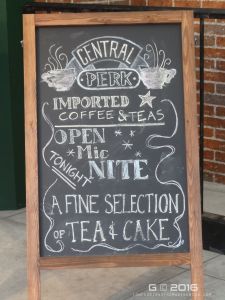 CENTRAL
PERK
IMPORTED
COFFEE & TEAS
OPEN
Mic
NITE
TONIGHT
A FINE SELECTION
OF TEA & CAKE
G © 2016